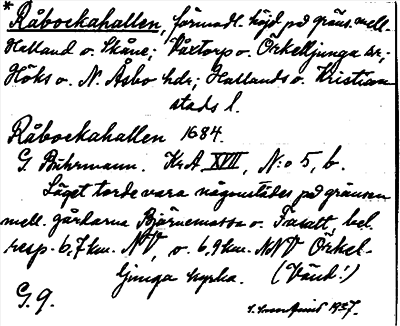 * Råbockahallen, förmodl. höjd på gräns. mell.
Halland o. Skåne; Våxtorp o. Örkelljunga sr;
Höks o. N. Åsbo hdr; Hallands o. Kristian
stads l.
Råbockahallen 1684.
G. Buhrmann. KrA XVII, N:o 5, b.
Läget torde vara någonstädes på gränsen
mell. gårdarna Bjärnemossa o. Fasalt, bel.
resp. 6,7 km. NV, o. 6,9 km. NNV Örkel-
ljunga kyrka. (Vänd!)
G. g.
1937.